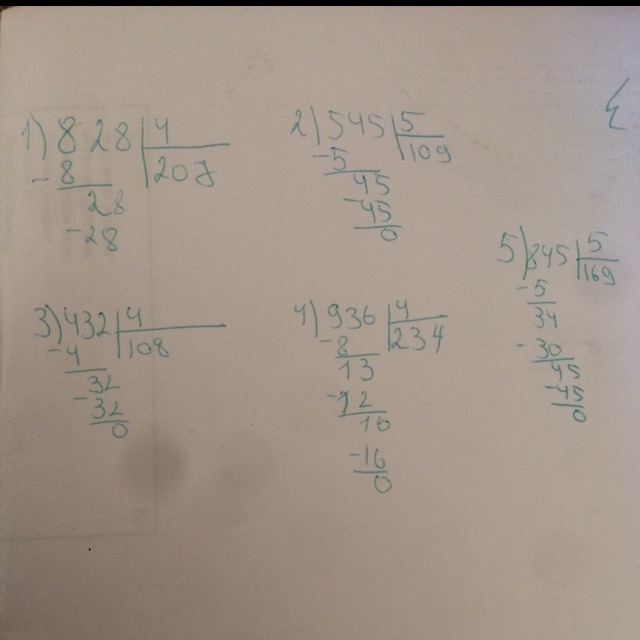 1) 828 | 4
- 8 | 207
28
- 28
2) 545 | 5
- 5 | 109
45
- 45
0
3) 432 | 4
- 4 | 108
32
- 32
0
4) 936 | 4
- 8 | 234
13
- 12
16
- 16
0
5) 845 | 5
- 5 | 169
34
- 30
45
- 45
0